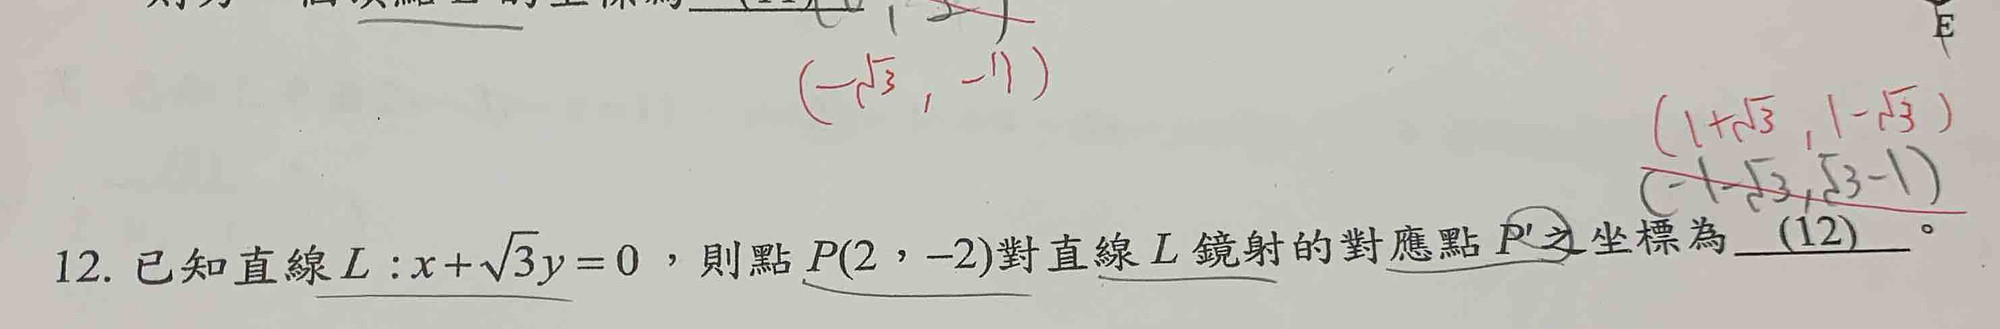 (11)
(-√3, -1)
E
(1+√3, 1-√3)
(-1-√3, √3-1)
12. 已知直線 L : x + √3y = 0 ，則點 P(2，-2)對直線 L 鏡射的對應點 P′之坐標為 (12) 。